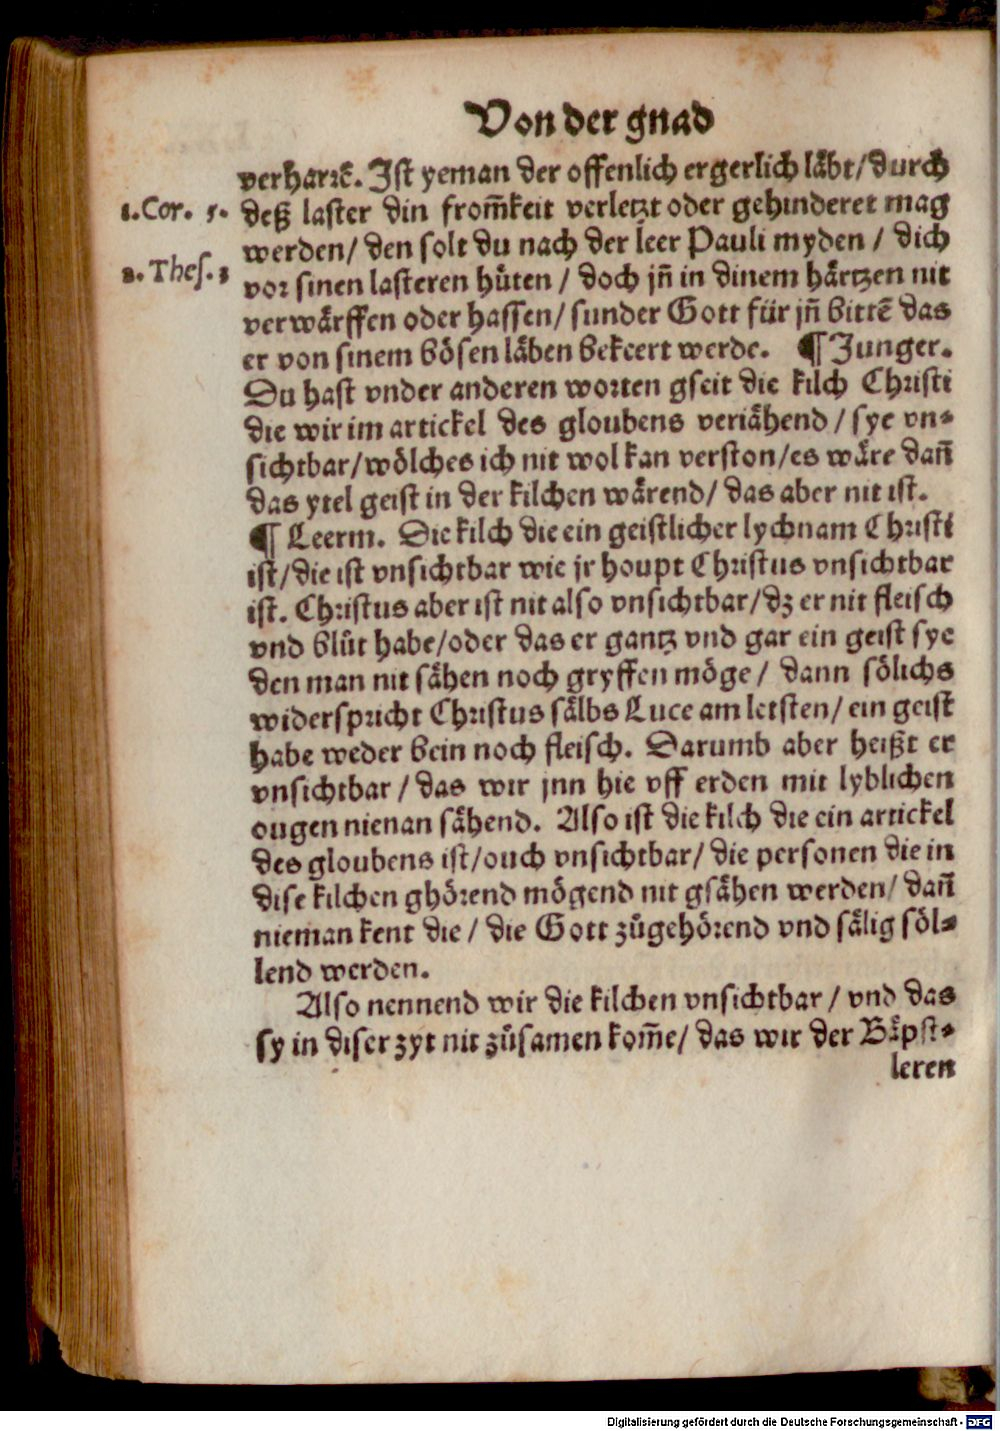 Von der gnad
verharrẽ. Ist yeman der offenlich ergerlich läbt/durch
1. Cor. 5.
deß laster din from̃keit verletzt oder gehinderet mag
werden/ den solt du nach der leer Pauli myden / dich
2. Thes. 3
vor sinen lasteren hůten / doch jñ in dinem hårtzen nit
verwårffen oder hassen/ sunder Gott für jñ bittẽ das
er von sinem bösen låben bekeert werde. ¶ Junger.
Du hast vnder anderen worten gseit die kilch Christi
die wir im artickel des gloubens veriåhend / sye vn⸗
sichtbar/wölches ich nit wol kan verston/es wåre dañ
das ytel geist in der kilchen wårend/ das aber nit ist.
¶ Leerm. Die kilch die ein geistlicher lychnam Christi
ist/die ist vnsichtbar wie jr houpt Christus vnsichtbar
ist. Christus aber ist nit also vnsichtbar/dz er nit fleisch
vnd blůt habe/oder das er gantz vnd gar ein geist sye
den man nit såhen noch gryffen möge / dann sölichs
widerspricht Christus sålbs Luce am letsten/ ein geist
habe weder bein noch fleisch. Darumb aber heißt er
vnsichtbar / das wir jnn hie vff erden mit lyblichen
ougen nienan såhend. Also ist die kilch die ein artickel
des gloubens ist/ouch vnsichtbar/ die personen die in
dise kilchen ghörend mögend nit gsåhen werden/ dañ
nieman kent die / die Gott zůgehörend vnd sålig söl⸗
lend werden.
Also nennend wir die kilchen vnsichtbar / vnd das
sy in diser zyt nit zůsamen kom̃e/ das wir der Båpst⸗
leren
Digitalisierung gefördert durch die Deutsche Forschungsgemeinschaft - DFG